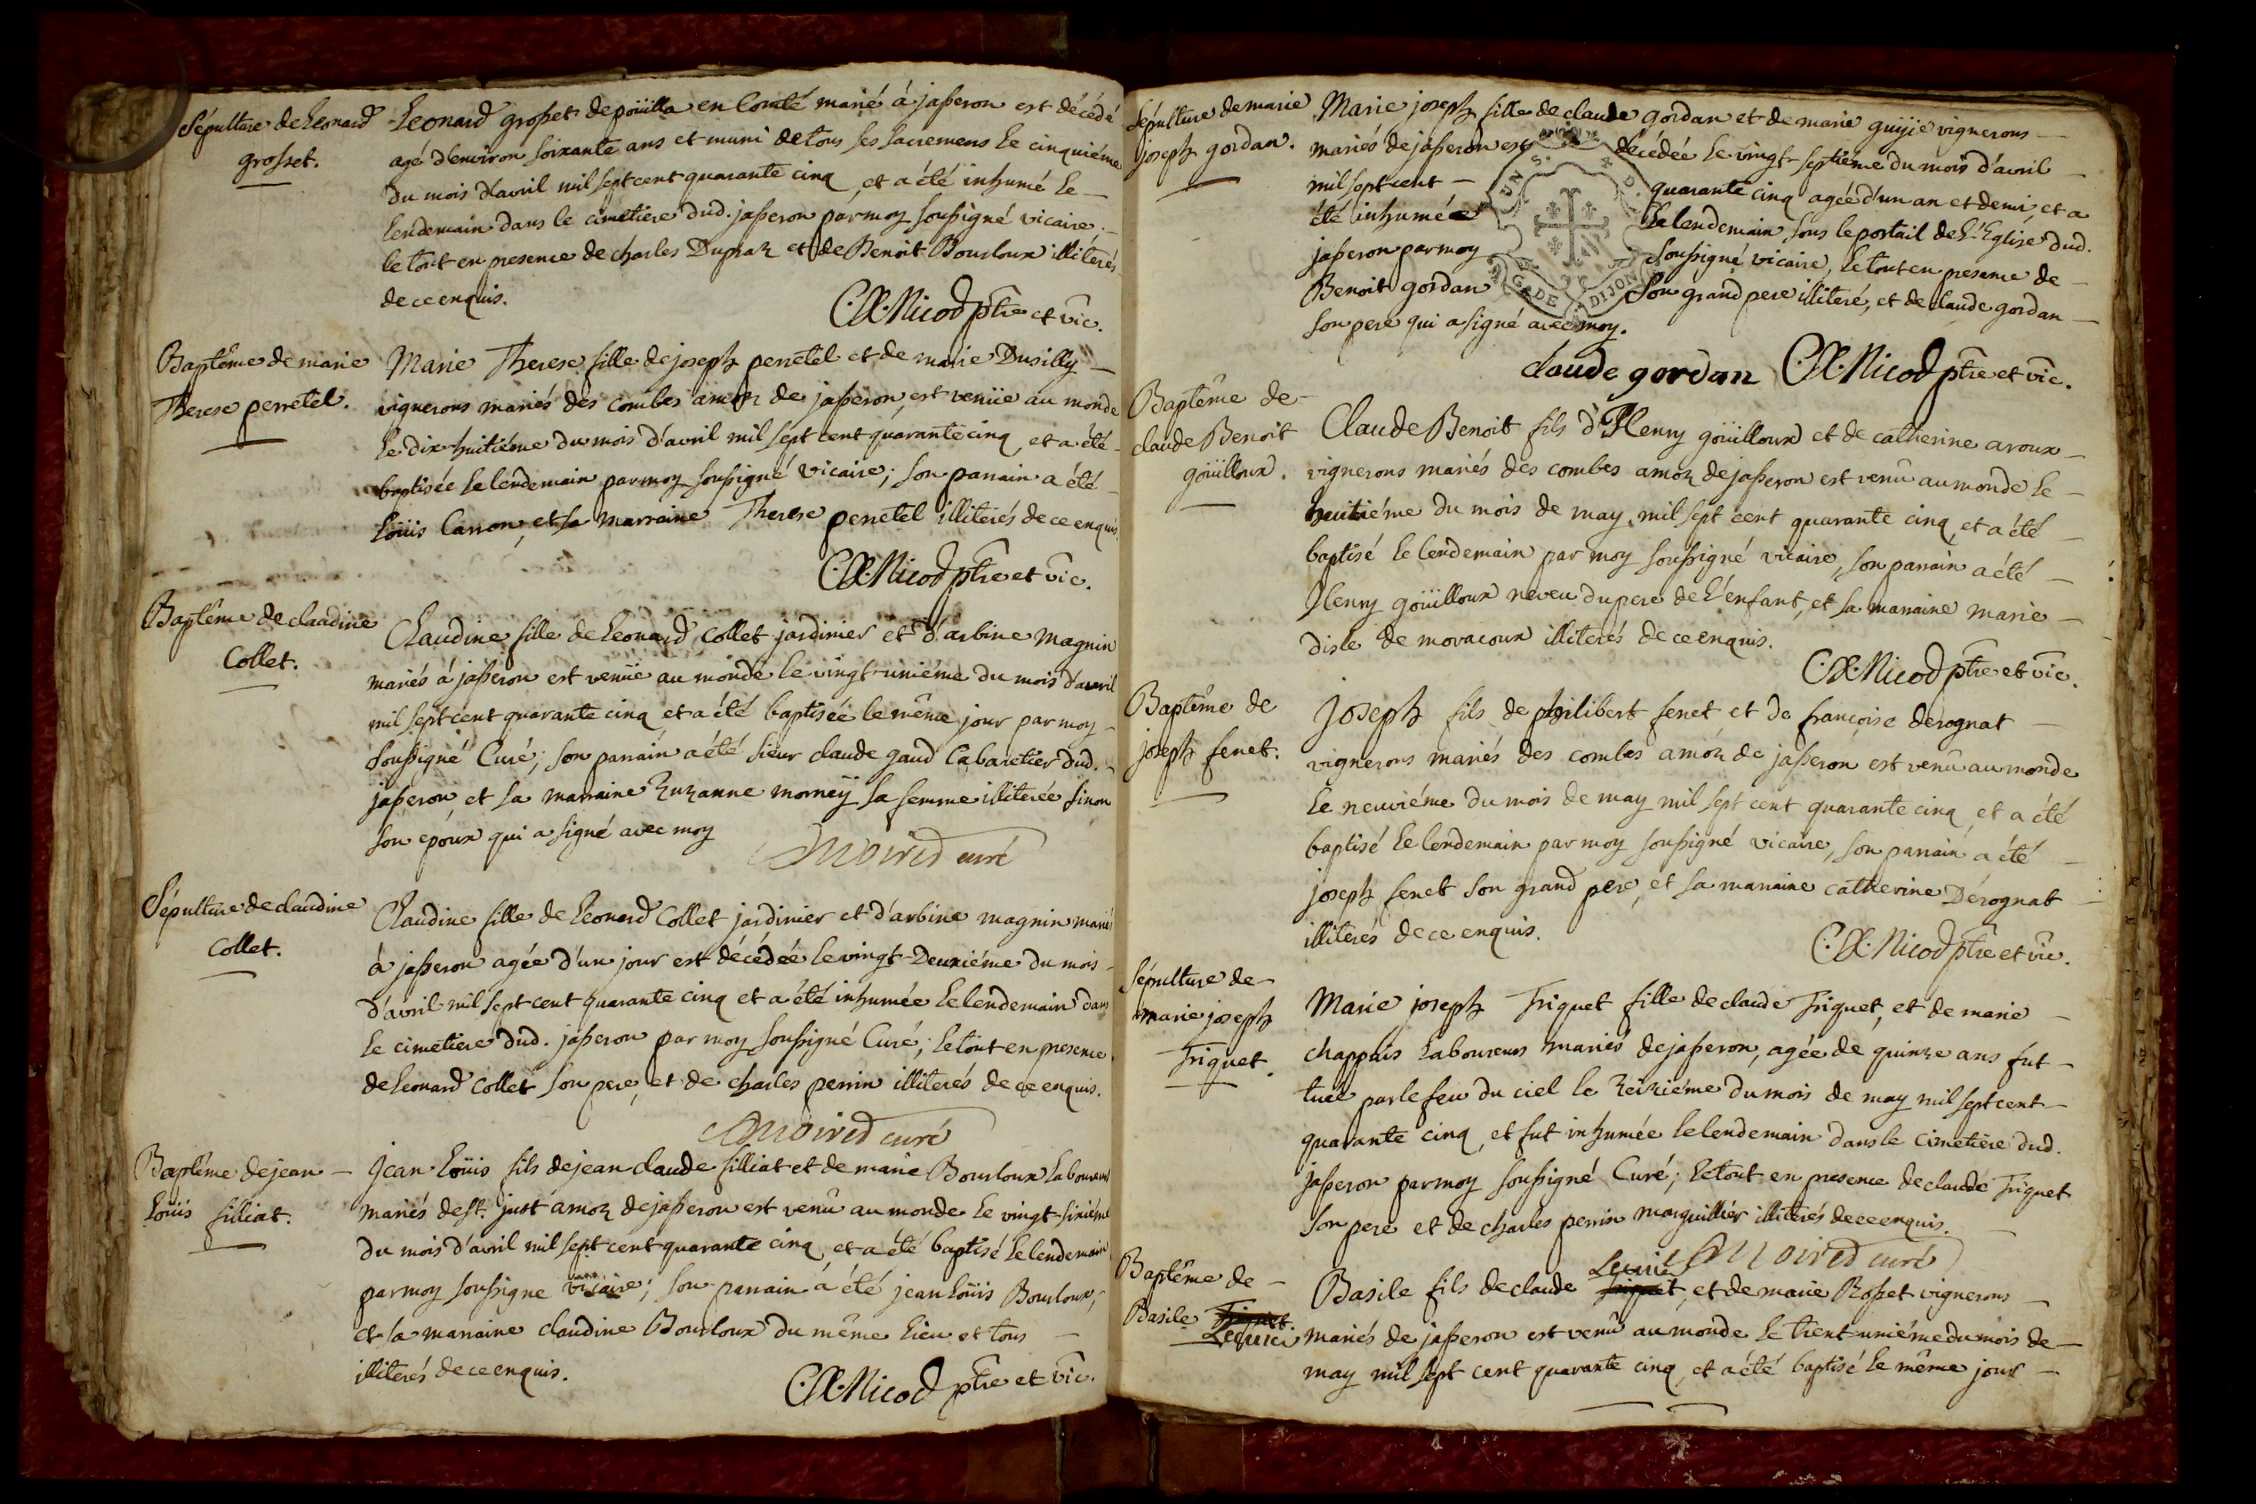 Sépulture de Leonard
grosset.
Leonard grosset de poüilla en Comté marié à jasseron est décédé
agé d'environ soixante ans et muni de tous ses sacremens le cinquiéme
du mois d'avril mil sept cent quarante cinq, et a été inhumé le
lendemain dans le cimetiere dud. jasseron par moy soussigné vicaire.
le tout en presence de charles Dupraz et de Benoit Bourloux illiterés
de ce enquis.
C.X. Nicod ptre et vic.
Baptême de marie
Therese perretel.
Marie Therese fille de joseph perretel et de marie Dusilly
vignerons mariés des combes amon de jasseron, est venüe au monde
le dix-huitiéme du mois d'avril mil sept cent quarante cinq, et a été
baptisée le lendemain par moy soussigné vicaire; son parrain a été
Loüis Carron, et sa marraine Therese perretel illiterés de ce enquis.
C.X. Nicod ptre et vic.
Baptême de claudine
Collet.
Claudine fille de Leonard Collet jardinier et d'arbine Magnin
mariés à jasseron est venüe au monde le vingt-uniéme du mois d'avril
mil sept cent quarante cinq et a été baptisée le même jour par moy
soussigné Curé; son parrain a été sieur claude gaud Cabaretier dud.
jasseron, et sa marraine Zuzanne morneÿ sa femme illiterée sinon
son epoux qui a signé avec moy
Moirod curé
Sépulture de claudine
Collet.
Claudine fille de Leonard Collet jardinier et d'arbine magnin mariés
à jasseron agée d'un jour est décédée le vingt-Deuxiéme du mois
d'avril mil sept cent quarante cinq et a été inhumée le lendemain dans
le cimetiere dud. jasseron par moy soussigné Curé; le tout en presence
de Leonard Collet son pere, et de charles perrin illiterés de ce enquis.
Moirod curé
Baptême de jean
Loüis filliat.
Jean Loüis fils de jean claude filliat et de marie Bourloux Laboureurs
mariés de st. just amon de jasseron est venû au monde le vingt-sixiéme
du mois d'avril mil sept cent quarante cinq, et a été baptisé le lendemain
par moy soussigne vicaire; son parrain a été jean Loüis Bourloux,
et sa marraine claudine Bourloux du même lieu et tous
illiterés de ce enquis.
C.X. Nicod ptre et vic.
Sépulture de marie
joseph gordan.
Marie joseph fille de claude gordan et de marie guÿie vignerons
mariés de jasseron est décédée le vingt-septiéme du mois d'avril
mil sept cent quarante cinq agée d'un an et demi, et a
été inhumée le lendemain sous le portail de L'Eglise dud.
jasseron par moy soussigné vicaire, le tout en presence de
Benoit gordan son grand pere illiteré, et de claude gordan
son pere qui a signé avec moy.
claude gordan C.X. Nicod ptre et vic.
Baptême de
claude Benoit
goüilloux.
Claude Benoit fils d'Henry goüilloux et de catherine aroux
vignerons mariés des combes amon de jasseron est venû au monde le
huitiéme du mois de may mil sept cent quarante cinq, et a été
baptisé le lendemain par moy soussigné vicaire, son parrain a été
Henry goüilloux neveu du pere de L'enfant, et sa marraine marie
disle de movacoux illiterés de ce enquis.
C.X. Nicod ptre et vic.
Baptême de
joseph fenet.
Joseph fils de philibert fenet et de françoise derognat
vignerons mariés des combes amon de jasseron est venû au monde
le neuviéme du mois de may mil sept cent quarante cinq et a été
baptisé le lendemain par moy soussigné vicaire, son parrain a été
joseph fenet son grand pere, et sa marraine catherine Dérognat
illiterés de ce enquis.
C.X. Nicod ptre et vic.
Sépulture de
marie joseph
Triquet.
Marie joseph Triquet fille de claude Triquet, et de marie
chappuis Laboureurs mariés de jasseron, agée de quinze ans fut
tuée par le feu du ciel le Zeiziéme du mois de may mil sept cent
quarante cinq, et fut inhumée le lendemain dans le cimetiere dud.
jasseron par moy soussigné Curé; le tout en presence de claude Triquet
son pere et de charles perrin marguillier illiterés de ce enquis.
Moirod curé
Baptême de
Basile Triquet.
Lecuiei
Lecuiei
Basile fils de claude Triquet, et de marie Rosset vignerons
mariés de jasseron est venû au monde le trent-uniéme du mois de
may mil sept cent quarante cinq, et a été baptisé le même jour
DIJON